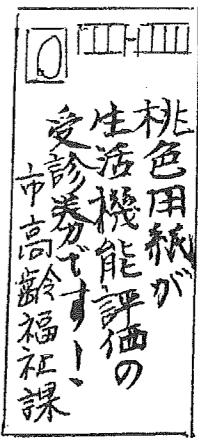 桃色用紙が
生活機能評価の
受診券です！、
市高齢福祉課